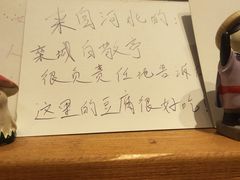 来自河北的:
栾城白敬亭
很负责任地告诉
这里的豆腐很好吃!